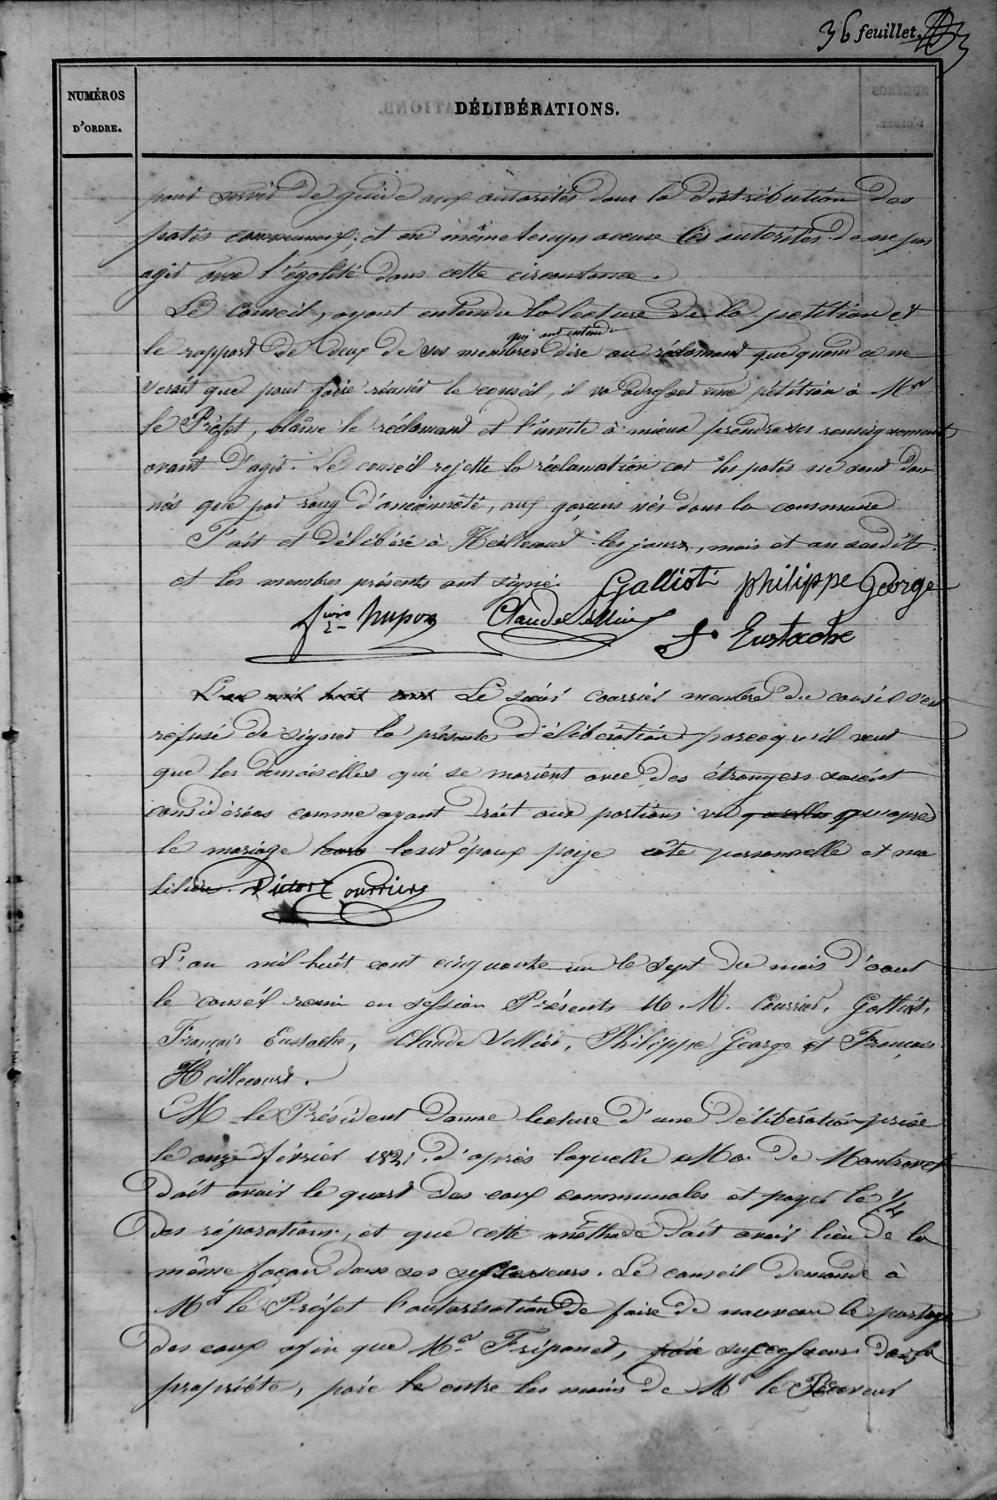 36 feuillet.
NUMÉROS
D'ORDRE.
DÉLIBÉRATIONS.
pour servir de guide aux autorités dans la distribution des
patis communaux; et en même temps accuse les autorités de ne pas
agir avec l'égalité dans cette circonstance.
Le Conseil, ayant entendu la lecture de la petition et
qui ont entendu
le rapport de deux de ses membres dire au réclamant que quand ce ne
serait que pour faire réunir le conseil, il va adresser une pétition à Mr
le Préfet, blâme le réclamant et l'invite à mieux prendre ses renseignements
avant d'agir. Le conseil rejette la réclamation car les patis ne sont don
nés que par rang d'ancienneté, aux garçons nés dans la commune
Fait et délibéré à Heillecourt les jours, mois et an susdits.
et les membres présents ont signé. Galliot philippe George
Claude
f s Eustache
L'an mil huit cent Le sieur Courrier membre du conseil s'est
refusé de signer la présente délibération parcequ'il veut
que les demoiselles qui se marient avec des étrangers soient
considérées comme ayant droit aux portions vu qu'elles qu'après
le mariage leurs leur époux paye côte personnelle et mo
bilière. Victor Courriers
L'an mil huit cent cinquante un le sept du mois d'aout
le conseil reuni en session Présents M. M. Courrier, Galliot,
François Eustache, Claude Vellier, Philippe George et François
Heillecourt.
M le Président donne lecture d'une délibération prise
le onze février 1821. d'après laquelle Mr de
doit avoir le quart des eaux communales et payer le 1/4
des réparations, et que cette méthode doit avoir lieu de la
même façon dans ses successeurs. Le conseil demande à
Mr le Préfet l'autorisation de faire de nouveau le partage
des eaux afin que Mr Friponet, successeur dans la
propriété, paie le entre les mains de Mr le Receveur